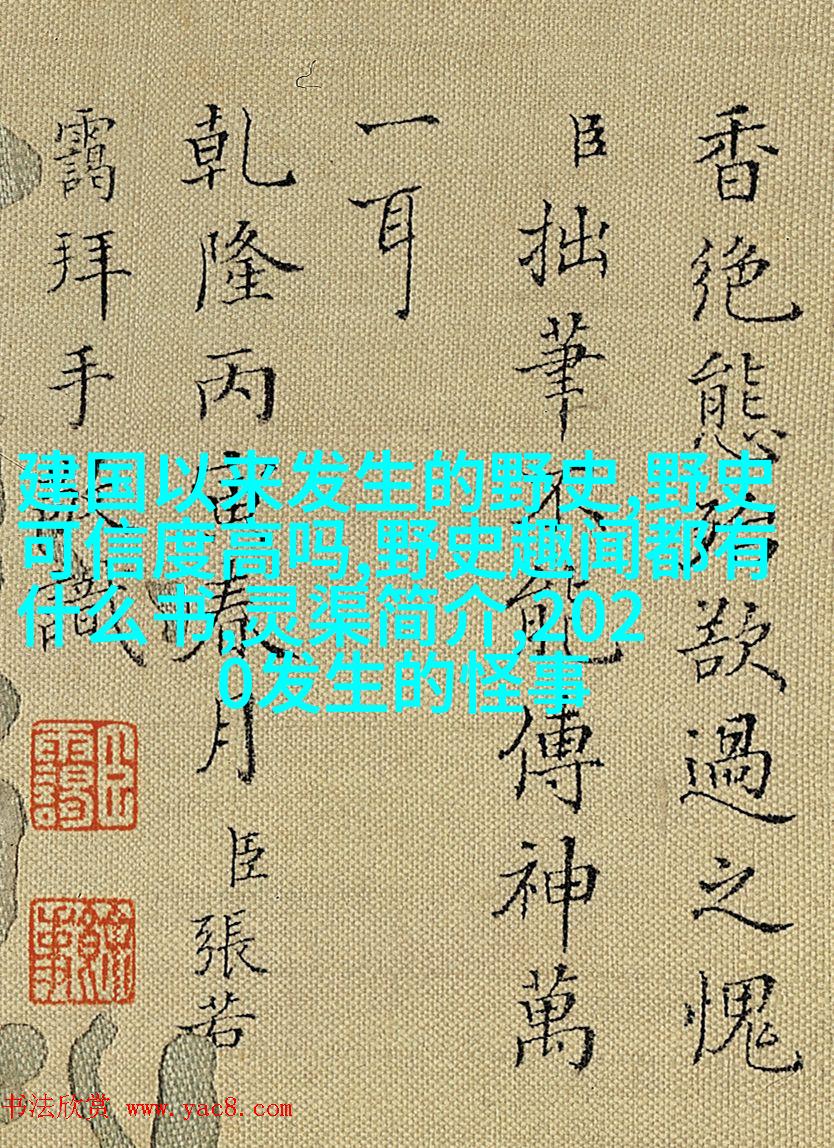 香絕態殆欲過之愧
臣拙筆不能傳神萬
一耳
乾隆丙寅春月臣張若
靄拜手識
建国以来发生的野史,野史
可信度高吗,野史趣闻都有
什么书,灵渠简介,202
0发生的怪事
书法欣赏 www.yac8.com